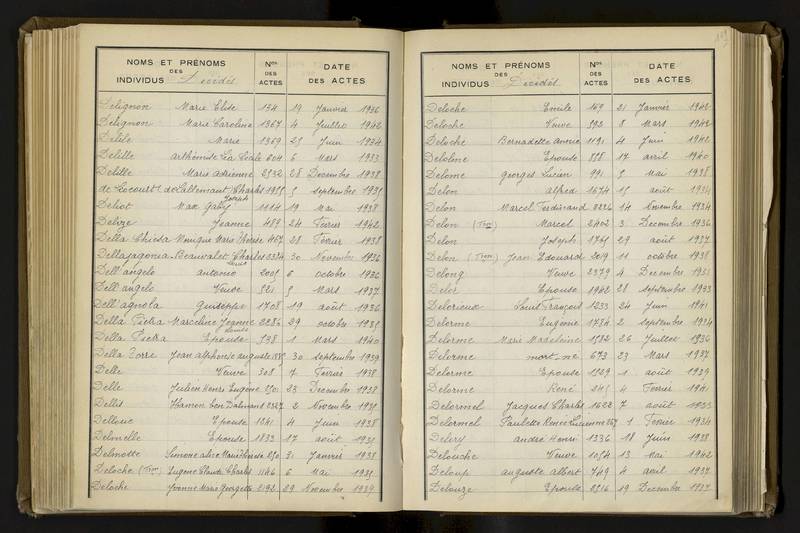 NOMS ET PRÉNOMS DES INDIVIDUS Décédés Nos DES ACTES DATE DES ACTES
Delignon Marie Elise 134 19 Janvier 1936
Delignon Marie Caroline 1367 4 Juillet 1942
Delile Marie 1369 25 Juin 1934
Delille 604 6 Mars 1933
Delille Marie adrienne 2532 28 Decembre 1938
de Lecourt de Lallemant Charles Joseph 5 septembre 1935
Deliot Max Gaby 1114 19 Mai 1938
Delize Jeanne 489 24 Fevrier 1942
Della Chiesa Monique Marie Therese 467 28 Fevrier 1938
Dellajagonia Beauvalet Charles 2334 30 Novembre 1936
Dell'angelo antonio 2005 6 octobre 1936
Dell'angelo Veuve 521 5 Mars 1937
Dell'agnola Guiseppe 1708 19 août 1936
Della Pietra Marceline Jeanne 2286 29 octobre 1935
Della Pietra Epouse 538 1 Mars 1940
Della Torre Jean alphonse auguste 30 septembre 1939
Delle Veuve 308 7 Fevrier 1938
Delle Julien Henri Eugène 23 Decembre 1938
Dellis Hamon ben Dahmani 2327 2 Novembre 1935
Delluc Epouse 1041 4 Juin 1938
Delmelle Epouse 1833 17 août 1935
Delmotte Simone alice Marie 31 Janvier 1938
Deloche (Tion) Eugene Claude Charles 1146 6 Mai 1935
Deloche Yvonne Marie Georgette 2192 29 Novembre 1939
NOMS ET PRÉNOMS DES INDIVIDUS Décédés Nos DES ACTES DATE DES ACTES
Deloche Emile 169 21 Janvier 1942
Deloche Veuve 592 8 Mars 1942
Deloche Bernadette Annie 1191 4 Juin 1942
Delolme Epouse 858 17 avril 1940
Delome georges Lucien 991 5 Mai 1938
Delon alfred 1674 15 août 1934
Delon Marcel Ferdinand 2236 14 Novembre 1934
Delon (Tion) Marcel 2402 3 Decembre 1936
Delon Joseph 1765 29 août 1937
Delon (Tion) Jean Edouard 2019 11 octobre 1938
Delong Veuve 2379 4 Decembre 1933
Delor Epouse 1942 28 septembre 1933
Delorieux Louis François 1233 24 Juin 1941
Delorme Eugene 1754 2 septembre 1934
Delorme Marie Madeleine 1532 26 Juillet 1936
Delorme mort-né 673 23 Mars 1937
Delorme Epouse 1529 1 août 1939
Delorme René 245 4 Fevrier 1941
Delormel Jacques Charles 1628 7 août 1933
Delormel Paulette Renée Lucienne 1 Fevrier 1934
Delery andré Henri 1336 18 Juin 1938
Delouche Veuve 1054 13 Mai 1942
Deloup auguste albert 749 4 avril 1937
Delouze Epouse 2516 19 Decembre 1937